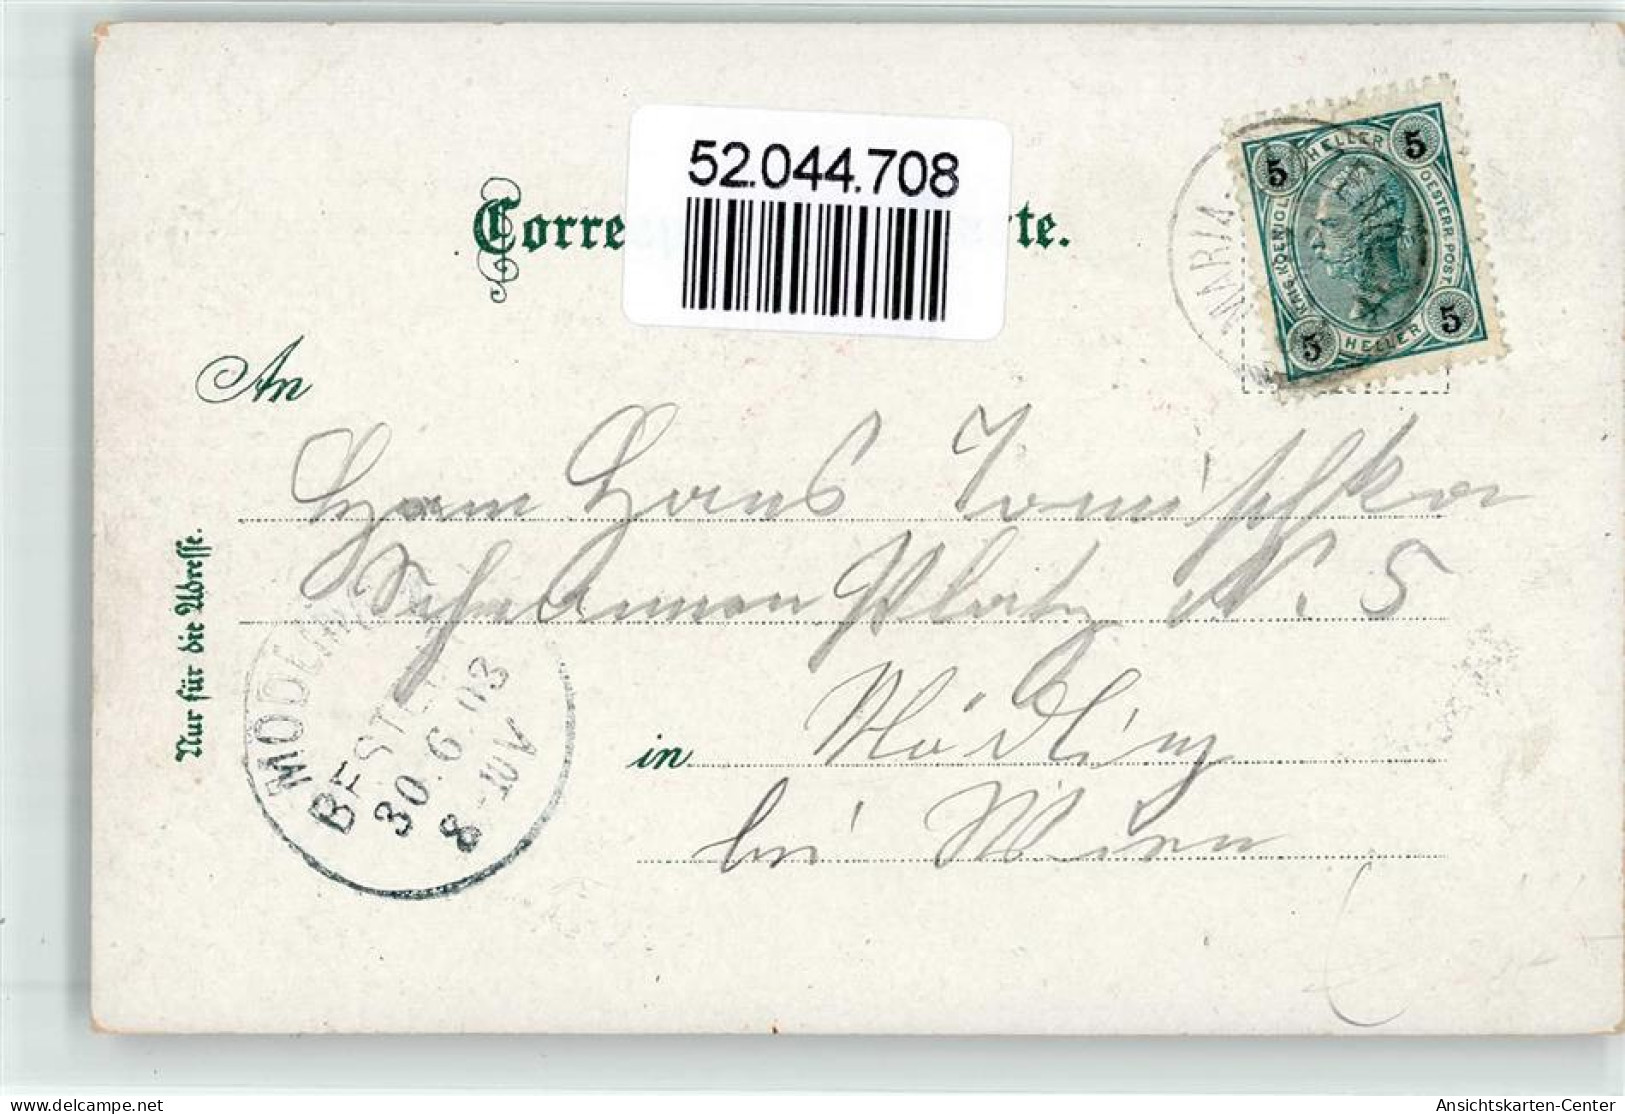 52.044.708
Corre te.
5 HELLER 5
KAIS. KOENIGL. OESTERR. POST
5 HELLER 5
MARIA
An
Herrn Hans Tomischka
Platz N. 5
in Mödling
bei Wien
Nur für die Adresse.
MÖDLING
BESTELLT
30.6.03
8-10V
delcampe.net
Ansichtskarten-Center